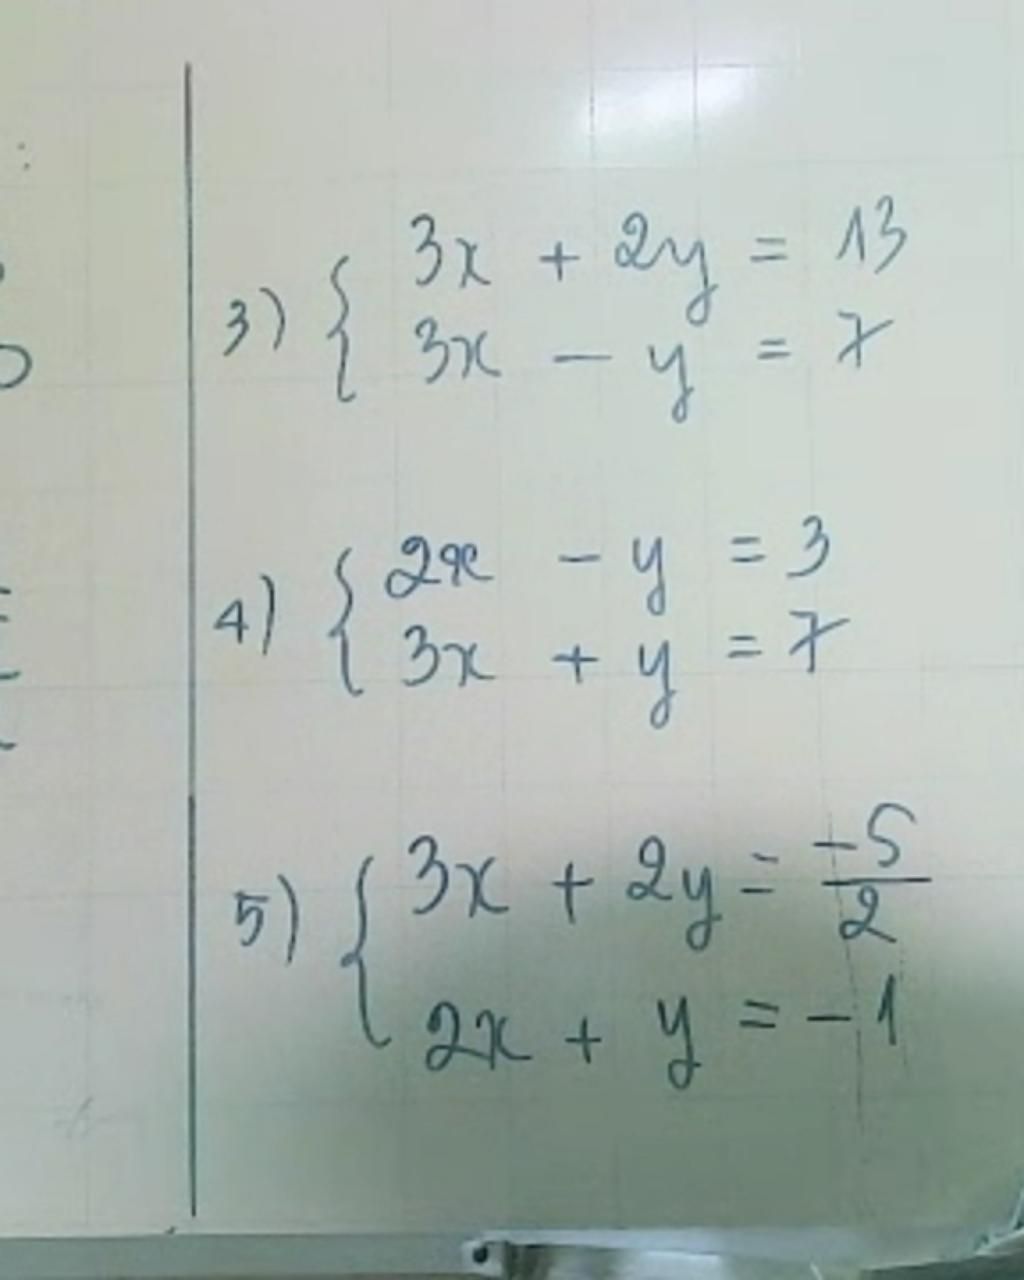 3) { 3x + 2y = 13
3x - y = 7
4) { 2x - y = 3
3x + y = 7
5) { 3x + 2y = -5/2
2x + y = -1